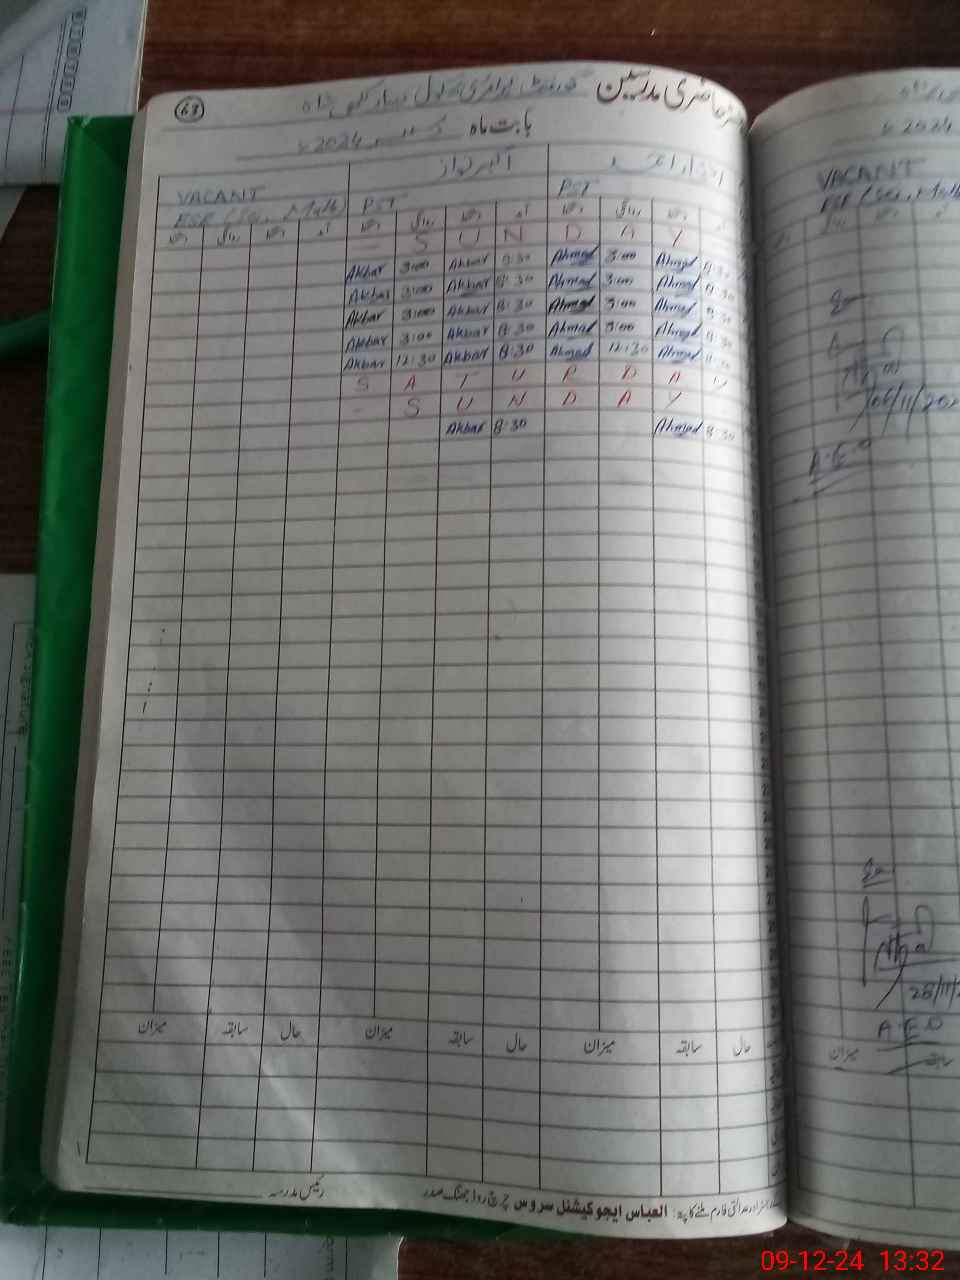 63
حاضری مدرسین گورنمنٹ پرائمری سکول
بابت ماہ دسمبر 2024ء
اکبر نواز
VACANT
PST PST
ESE (Sci, Math)
دستخط روانگی دستخط آمد دستخط روانگی دستخط آمد دستخط روانگی دستخط
- S U N D A Y
Akbar 3:00 Akbar 8:30 Ahmad 3:00 Ahmad 8:30
Akbar 3:00 Akbar 8:30 Ahmad 3:00 Ahmad 8:30
Akbar 3:00 Akbar 8:30 Ahmad 3:00 Ahmad 8:30
Akbar 3:00 Akbar 8:30 Ahmad 3:00 Ahmad 8:30
Akbar 12:30 Akbar 8:30 Ahmad 12:30 Ahmad 8:30
S A T U R D A Y
- S U N D A Y
Akbar 8:30 Ahmad 8:30
میزان سابقہ حال میزان سابقہ حال میزان سابقہ حال
رئیس مدرسہ
ملنے کا پتہ: العباس ایجوکیشنل سروس چرچ روڈ جھنگ صدر
2024ء
VACANT
ESE (Sci, Math
06/11/202
A.E.O
28/11/2
A.E.O
میزان سابقہ
09-12-24 13:32